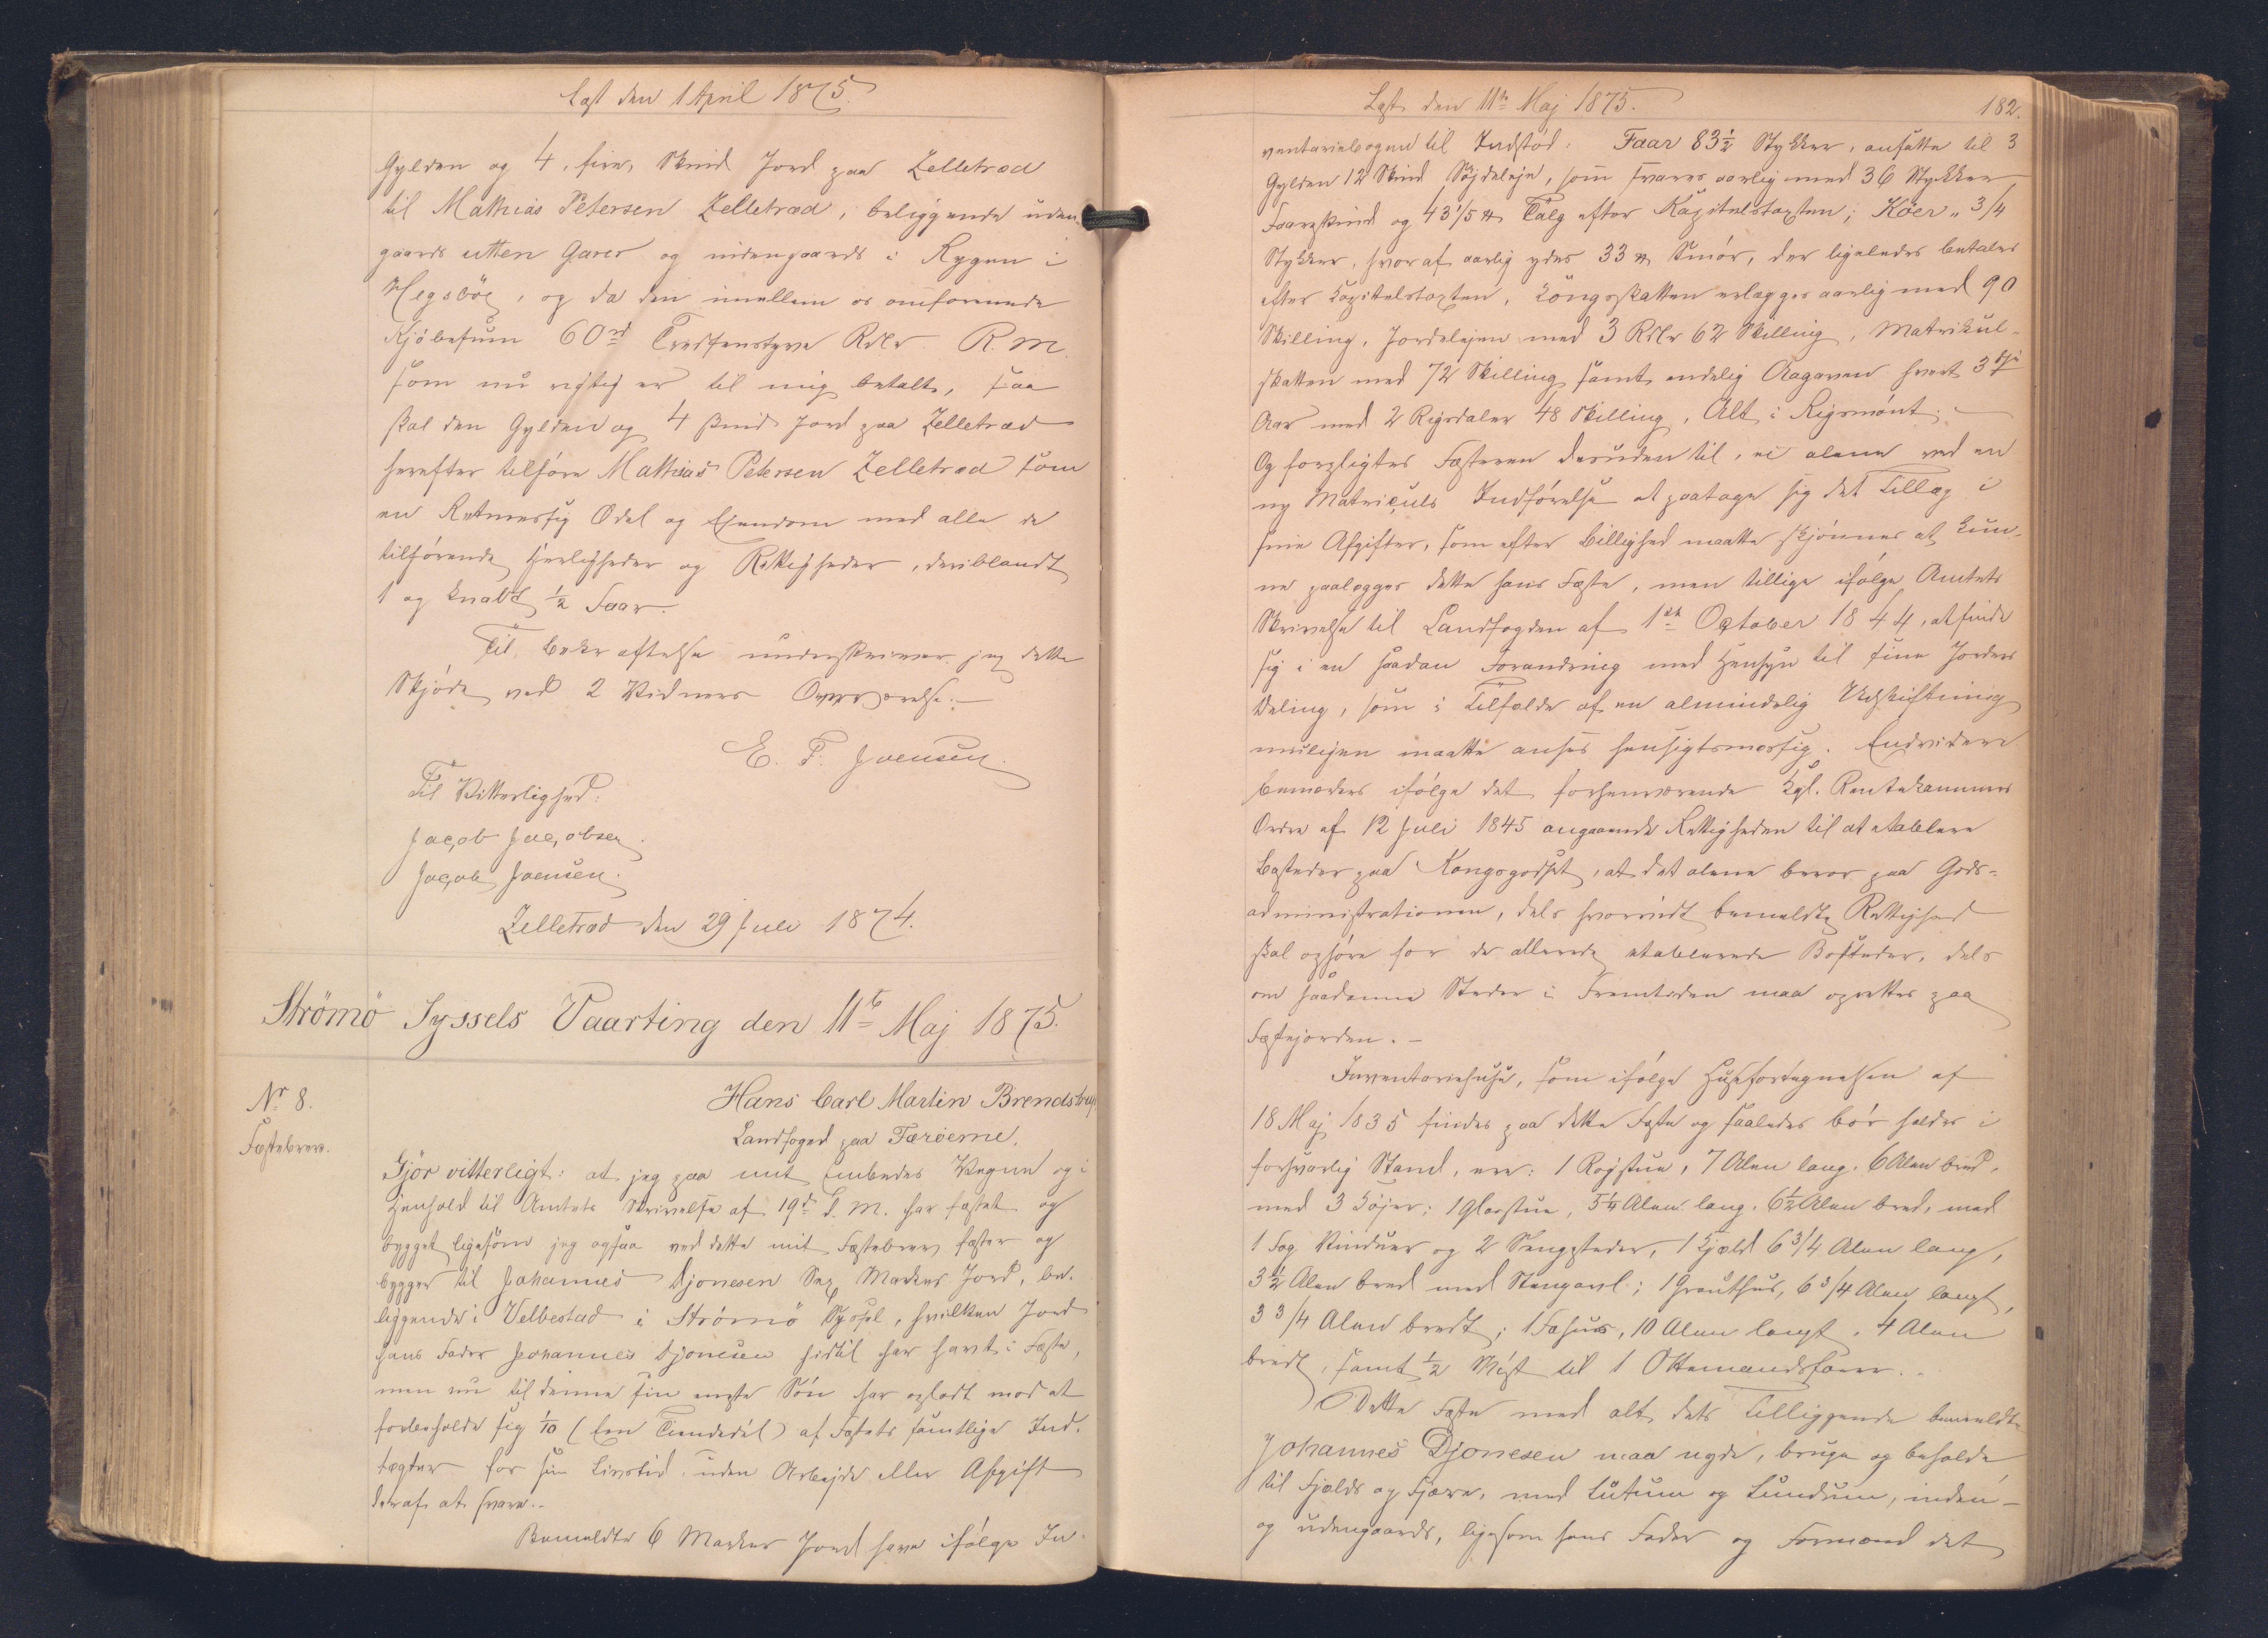 Læst den 1 April 1875.
Gylden og 4, fire, Skind Jord paa Zelletræd
til Mathias Petersen Zelletræd, beliggende uden-
gaards utten Garer og indengaards i Rygen i
Hegsböe, og da den imellem os omforenede
Kjöbesum 60 rd Tredsenstyve Rdlr R.M.
som nu rigtig er til mig betalt, saa
skal den Gylden og 4 skind Jord paa Zelletræd
herefter tilhöre Mathias Petersen Zelletræd som
en Retmessig Odel og Ejendom med alle de
tilhörende Herligheder og Rettigheder, deriblandt
1 og knabt ½ Faar.
Til Bekræftelse underskriver jeg dette
Skjöde ved 2 Vidners Overværelse.
E. F. Joensen.
Til Vitterlighed:
Jacob Jacobsen.
Jacob Joensen.
Zelletræd den 29 Juli 1874.
Strömö Syssels Vaarting den 11te Maj 1875.
Nr 8.
Fæstebrev.
Hans Carl Martin Brendstrup
Landfoged paa Færöerne,
Gjör vitterligt: at jeg paa mit Embedes Vegne og i
Henhold til Amtets Skrivelse af 19de d. M. har fæstet og
bygget ligesom jeg ogsaa ved dette mit Fæstebrev fæster og
bygger til Johannes Djonesen Sex Marker Jord, be-
liggende i Velbestad i Strömö Syssel, hvilken Jord
hans Fader Johannes Djonesen hidtil har havt i Fæste,
men nu til denne sin yngste Sön har opladt mod at
forbeholde sig 1/10 (Een Tiendedel) af Fæstets samtlige Ind-
tægter for sin Livstid, uden Arbejde eller Afgift
deraf at svare.
Bemeldte 6 Marker Jord have ifölge In-
Læst den 11te Maj 1875.
182.
ventariebogen til Indstöd: Faar 83½ Stykker, ansatte til 3
Gylden 12 Skind Söjdeleje, som svares aarlig med 36 Stykker
Faareskind og 43 1/5 ℔ Talg efter Kapitelstaxten; Köer „ 3/4
Stykker, hvoraf aarlig ydes 33 ℔ Smör, der ligeledes betales
efter Kapitelstaxten, Kongsskatten erlægges aarlig med 90
Skilling, Jordelejen med 3 Rdlr 62 Skilling, Matrikul-
skatten med 72 Skilling samt endelig Aagaven hvert 3die
Aar med 2 Rigsdaler 48 Skilling, Alt i Rigsmönt.
Og forpligtes Fæsteren desuden til, ei alene ved en
ny Matriculs Indförelse at paatage sig det Tillæg i
sine Afgifter, som efter Billighed maatte skjönnes at kun-
ne paalægges dette hans Fæste, men tillige ifölge Amtets
Skrivelse til Landfogden af 1ste October 1844, at finde
sig i en saadan Forandring med Hensyn til sine Jorders
Deling, som i Tilfælde af en almindelig Udskiftning
muligen maatte anses hensigtsmæssig. Endvidere
bemærkes ifölge det forhenværende Kgl. Rentekammers
Ordre af 12 Juli 1845 angaaende Rettigheden til at etablere
Bosteder paa Kongsgodset, at det alene beror paa Gods-
administrationen, dels hvorvidt bemeldte Rettighed
skal ophöre for de allerede etablerede Bosteder, dels
om saadanne Steder i Fremtiden maa oprettes paa
Fæstejorden.
Inventariehuse, som ifölge Husefortegnelsen af
18 Maj 1835 findes paa dette Fæste og saaledes bör holdes i
forsvarlig Stand, ere: 1 Rögstue, 7 Alen lang, 6 Alen bred,
med 3 Köjer; 1 Glasstue, 5¼ Alen lang, 6½ Alen bred, med
1 Fag Vinduer og 2 Sengesteder, 1 Hjald 6 3/4 Alen lang,
3½ Alen bred med Stengavl; 1 Grauthus, 6 3/4 Alen langt,
3 3/4 Alen bredt; 1 Fæhuus, 10 Alen langt, 4 Alen
bredt, samt ½ Nöst til 1 Ottemandsfarer.
Dette Fæste med alt dets Tilliggende bemeldte
Johannes Djonesen maa nyde, bruge og beholde
til Fjelds og Fjære, med Lutum og Lundum, inden-
og udengaards, ligesom hans Fader og Formand det